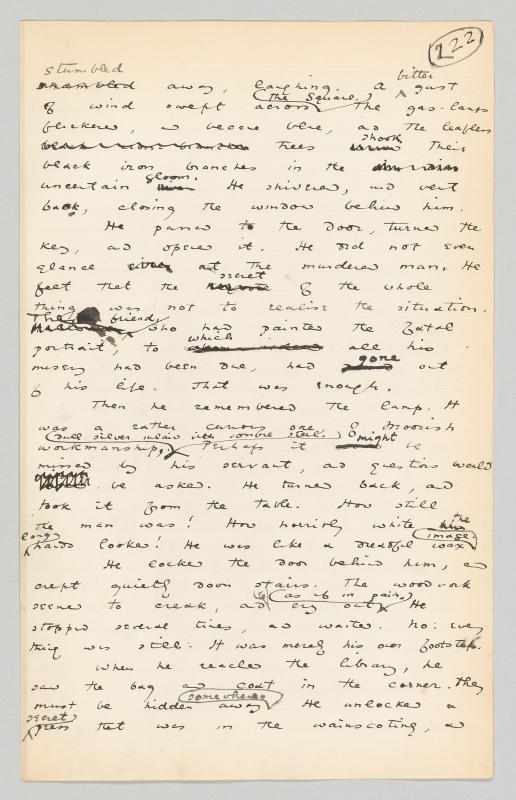 222
stumbled bitter
away, laughing. A gust
the Square.
of wind swept across The gas-lamps
flickered, and became blue, and the leafless
shook
trees their
black iron branches in the
gloom.
uncertain He shivered, and went
back, closing the window behind him.
He passed to the door, turned the
key, and opened it. He did not even
glance at the murdered man. He
secret
felt that the of the whole
thing was not to realise the situation.
The friend
who had painted the fatal
which
portrait, to all his
gone
misery had been due, had out
of his life. That was enough.
Then he remembered the lamp. It
was a rather curious one of Moorish
dull silver inlaid with sombre steel. might
workmanship, Perhaps it be
missed by his servant, and questions would
be asked. He turned back, and
took it from the table. How still
the
the man was! How horribly white
long image
hands looked! He was like a dreadful wax
He locked the door behind him, and
crept quietly down stairs. The woodwork
as if in pain.
seemed to creak, and cry out He
stopped several times, and waited. No: every
thing was still. It was merely his own footsteps.
When he reached the library, he
saw the bag and coat in the corner. They
somewhere.
must be hidden away He unlocked a
secret
press that was in the wainscoting, a